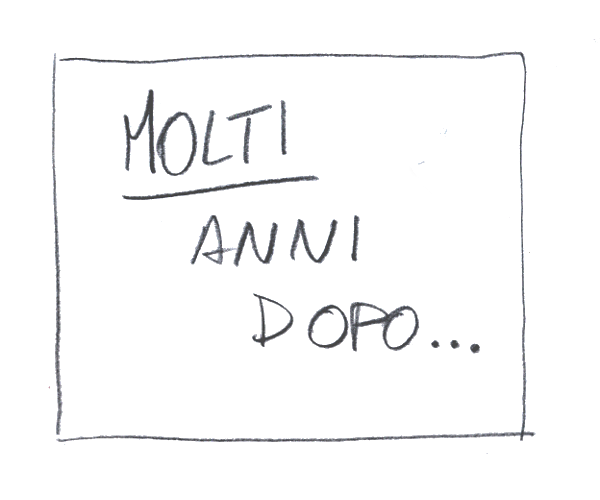 MOLTI
ANNI
DOPO...